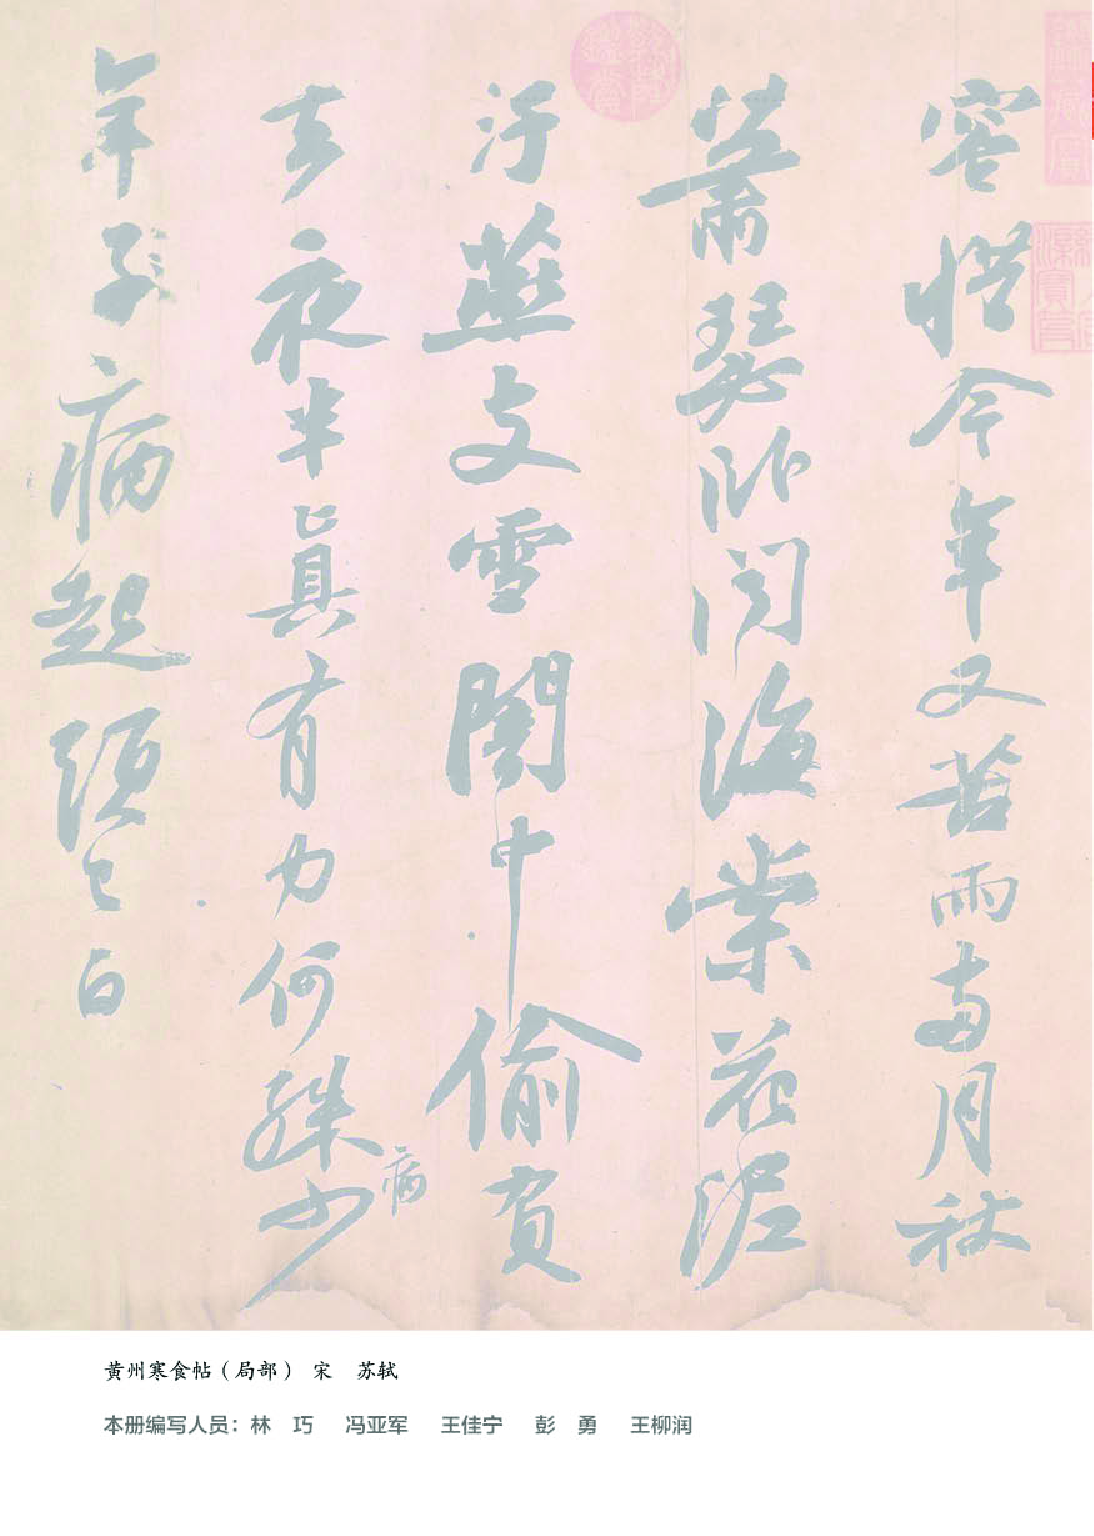 容惜今年又苦雨两月秋
萧瑟卧闻海棠花泥
汙燕支雪闇中偷負
去夜半真有力何殊少
病
年子病起頭已白
黄州寒食帖（局部） 宋 苏轼
本册编写人员：林 巧 冯亚军 王佳宁 彭 勇 王柳润